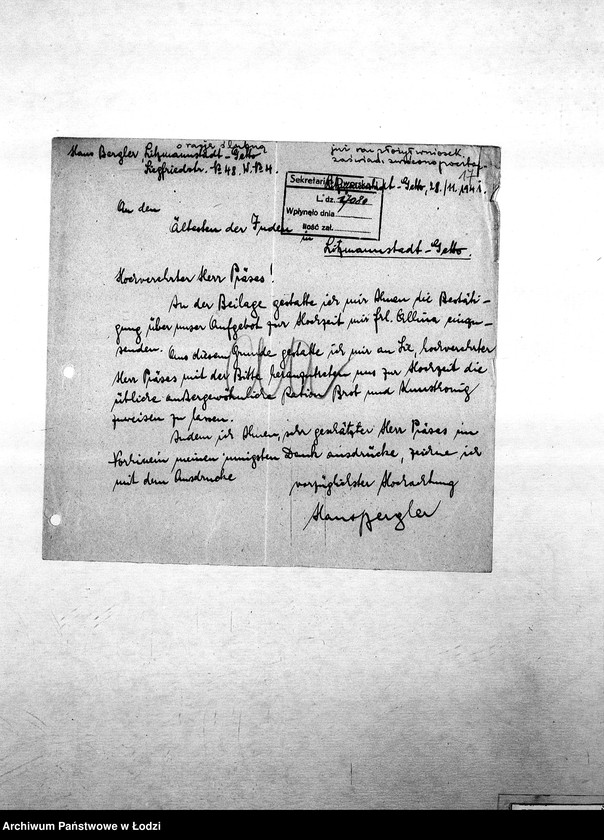 Hans Bergler, Litzmannstadt-Getto
Siegfriedstr. № 48. W. № 4.
już raz złożył wniosek.
17
Sekretariat Dworska 1
L. dz.
Wpłynęło dnia
Ilość zał.
Litzmannstadt-Getto, 28./11. 1941.
An den
Ältesten der Juden
in
Litzmannstadt-Getto.
Hochverehrter Herr Präses!
In der Beilage gestatte ich mir Ihnen die Bestäti-
gung über unser Aufgebot zur Hochzeit mit Frl. einzu-
senden. Aus diesem Grunde gestatte ich mir an Sie, hochverehrter
Herr Präses mit der Bitte heranzutreten uns zur Hochzeit die
übliche außergewöhnliche Ration Brot und Kunsthonig
zuweisen zu lassen.
Indem ich Ihnen, sehr geschätzter Herr Präses im
Vorhinein meinen innigsten Dank ausdrücke, zeichne ich
mit dem Ausdrucke
vorzüglichster Hochachtung
Hans Bergler
Archiwum Państwowe w Łodzi